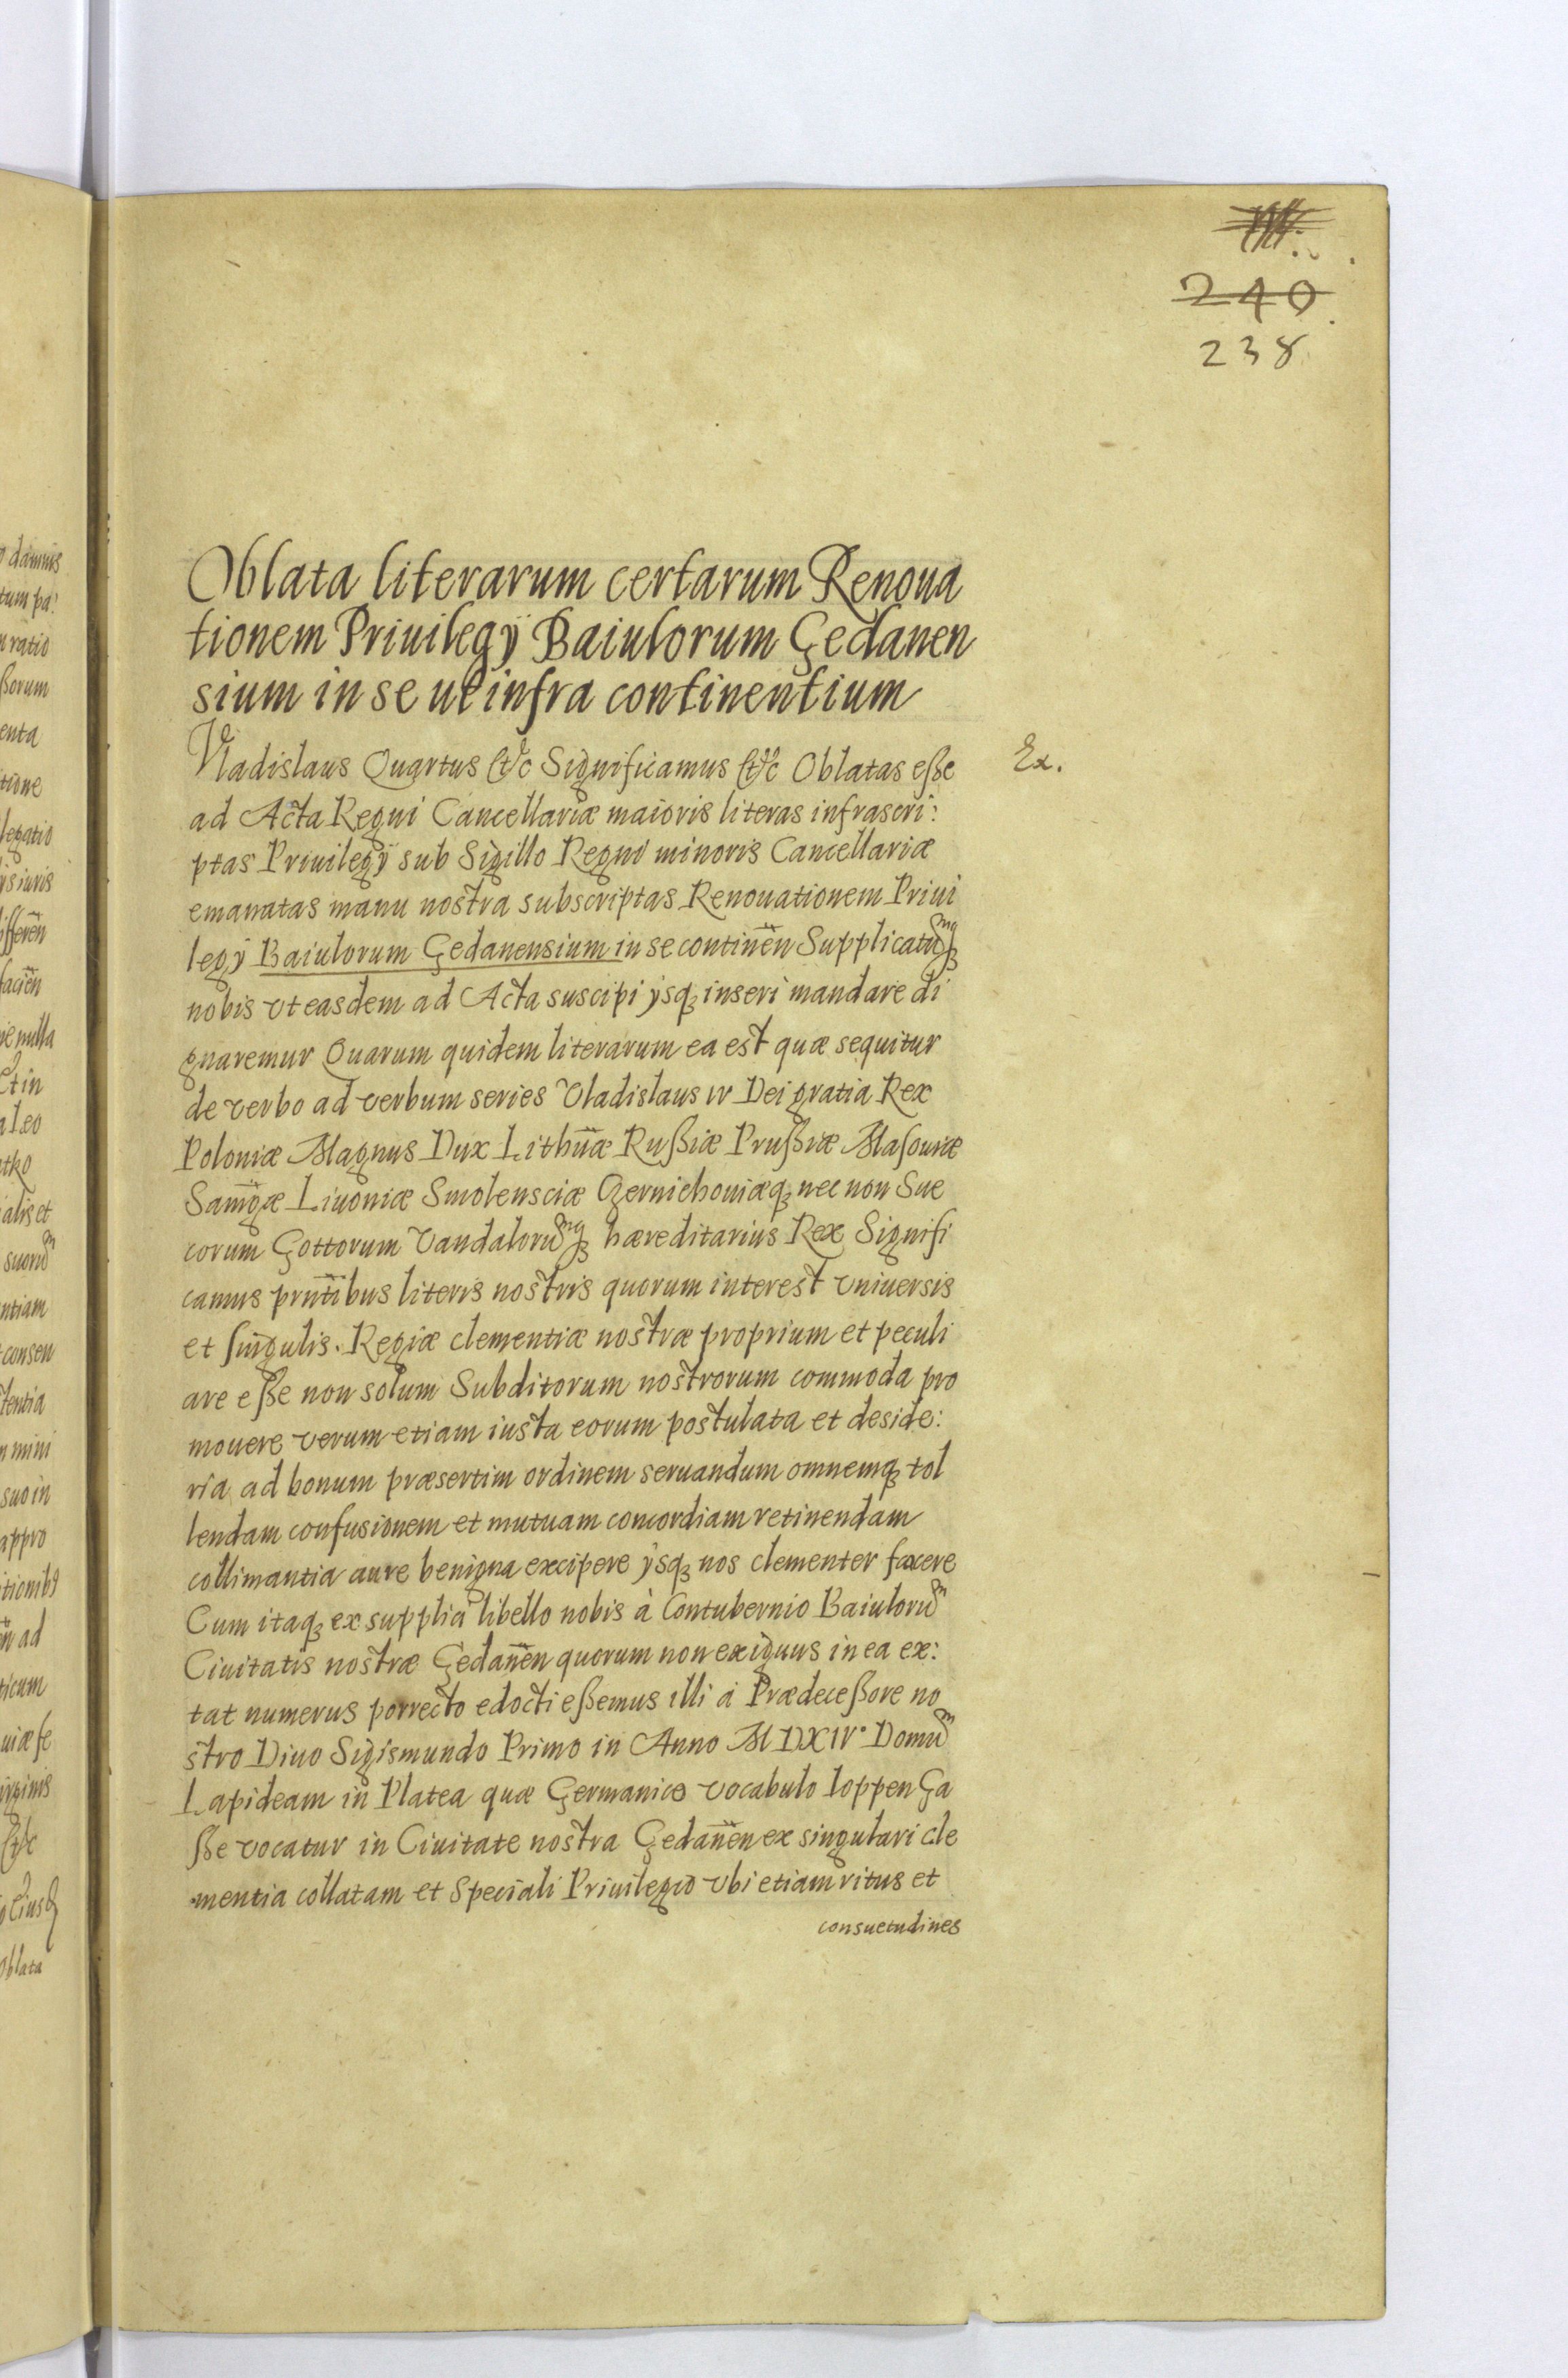 240
238
Oblata literarum certarum Renoua
tionem Priuilegÿ Baiulorum Gedanen
sium in se ut infra continentium
Vladislaus Quartus etc Significamus etc Oblatas eße
Ex.
ad Acta Regni Cancellariæ maioris literas infrascri:
ptas Priuilegÿ sub Sigillo Regni minoris Cancellariæ
emanatas manu nostra subscriptas Renouationem Priui
legÿ Baiulorum Gedanensium in se continen̄ Supplicatūmq₃
nobis vt easdem ad Acta suscipi ÿsq₃ inseri mandare di
gnaremur Quarum quidem literarum ea est quæ sequitur
de verbo ad verbum series Vladislaus IV Dei gratia Rex
Poloniæ Magnus Dux Lithūæ Rußiæ Prußiæ Masouiæ
Samg̅æ Liuoniæ Smolensciæ Czernichouiæq₃ nec non Sue
corum Gottorum Vandalorūmq₃ hæreditarius Rex Signifi
camus prn̄tibus literis nostris quorum interest vniuersis
et singulis. Regiæ clementiæ nostræ proprium et peculi
are eße non solum Subditorum nostrorum commoda pro
mouere verum etiam iusta eorum postulata et deside:
ria ad bonum præsertim ordinem seruandum omnemq₃ tol
lendam confusionem et mutuam concordiam retinendam
collimantia aure benigna excipere ÿsq₃ nos clementer facere
Cum itaq₃ ex supplici libello nobis à Contubernio Baiulorūm
Ciuitatis nostræ Gedanen̄ quorum non exiguus in ea ex:
tat numerus porrecto edocti eßemus illi à Prædeceßore no
stro Diuo Sigismundo Primo in Anno MDXIV° Domūm
Lapideam in Platea quæ Germanico vocabulo Ioppen Ga
ße vocatur in Ciuitate nostra Gedanen̄ ex singulari cle
mentia collatam et Speciali Priuilegio vbi etiam ritus et
consuetudines